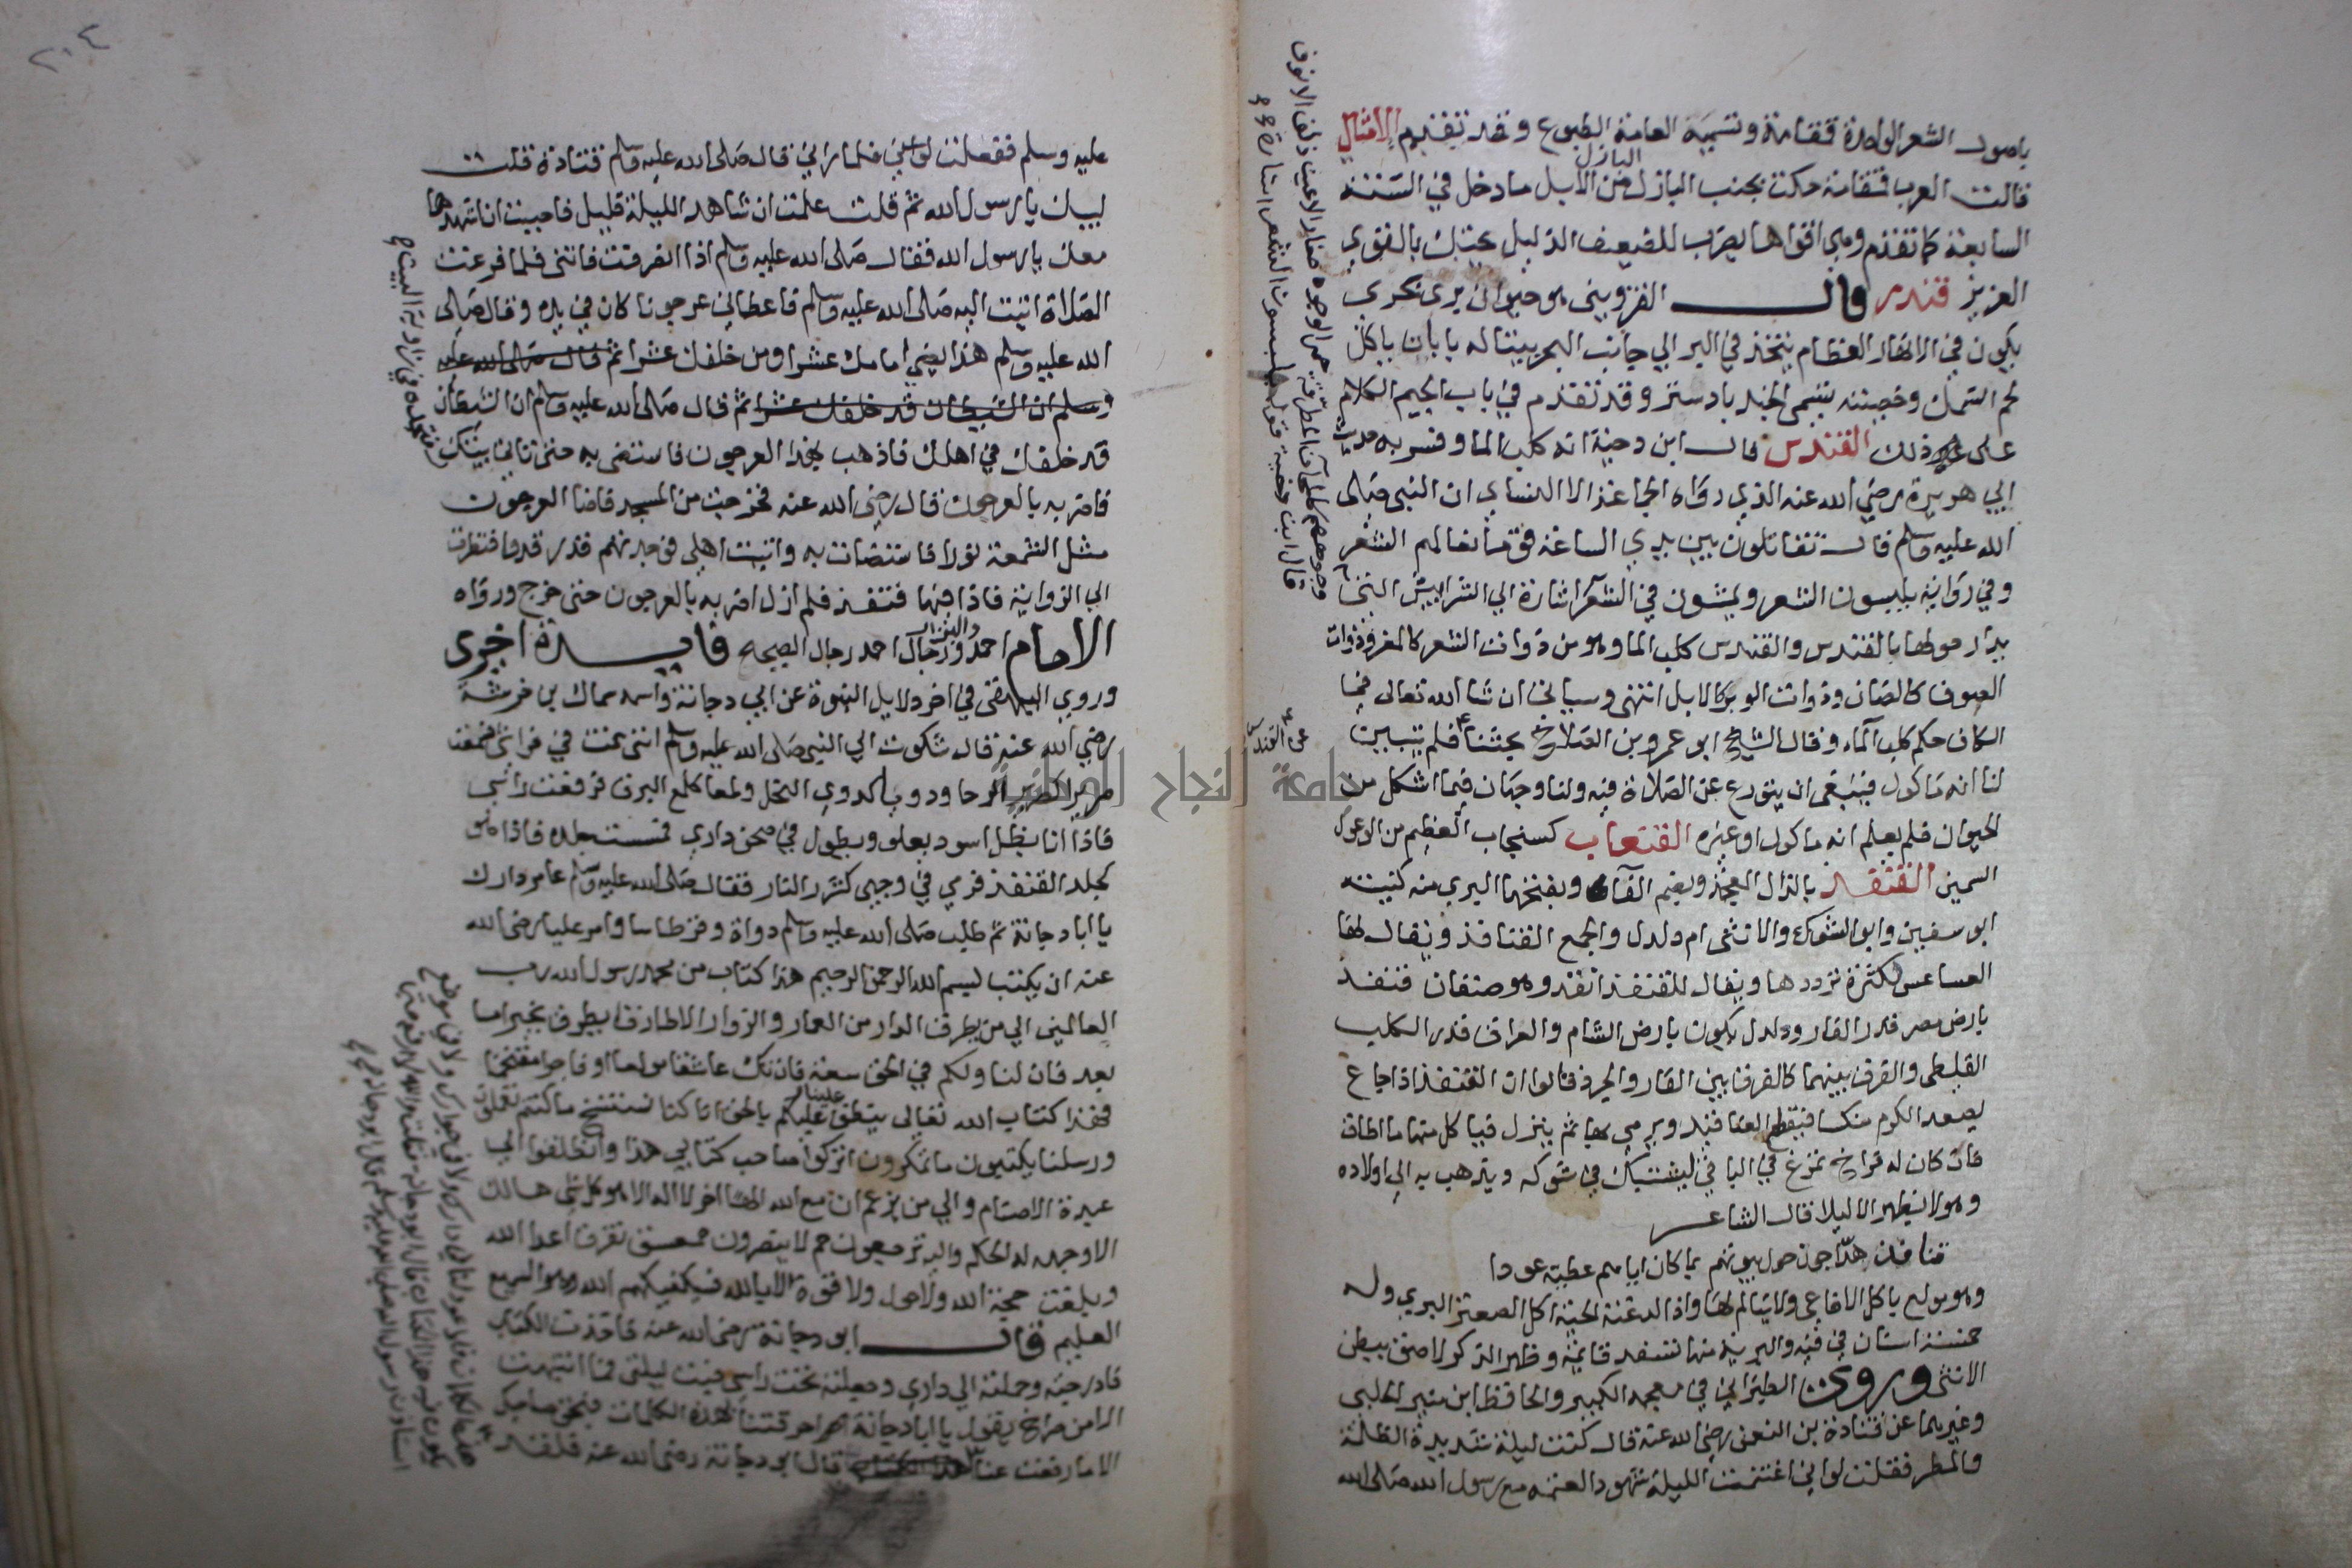 باصول الشعر الواحدة قمقامة وتسميه العامة الطبوع وقد تقدم الامثال
قالت العرب قمقامة حكت بجنب البازل البازل من الابل ما دخل في السنة
السابعة كما تقدم وهي اقواها يضرب للضعيف الذليل يحتك بالقوي
العزيز قندر قال القزويني هو حيوان بري بحري
يكون في الانهار العظام يتخذ في البر الي جانب البحر بيتا له بابان ياكل
لحم السمك وخصيته تسمى الجندبادستر وقد تقدم في باب الجيم الكلام
على ذلك القندس قال ابن دحية انه كلب الما وفسر به حديث
ابي هريرة رضي الله عنه الذي رواه الجماعة الا النساي ان النبي صلى
الله عليه وسلم قال تقاتلون بين يدي الساعة قوما نعالهم الشعر
وفي رواية يلبسون الشعر ويمشون في الشعر اشارة الي الشرابيش التي
يدار حولها بالقندس والقندس كلب الما وهو من ذوات الشعر كالمعز وذوات
الصوف كالضان وذوات الوبر كالابل انتهى وسياتي ان شا الله تعالى في
الكاف حكم كلب الماء وقال الشيخ ابو عمرو بن الصلاح بحثنا فلم يتبين
لنا انه ماكول فينبغي ان يتورع عن الصلاة فيه ولنا وجهان فيما اشكل من
الحيوان فلم يعلم انه ماكول او غيره القنعاب كسنجاب العظيم من الوعول
السمين القنفذ بالذال المعجمة وبضم الفا وبفتحها البري منه كنيته
ابو سفين وابو الشوك والانثى ام دلدل والجمع القنافذ ويقال لها
العساعس لكثرة ترددها ويقال للقنفذ انقد وهو صنفان قنفذ
بارض مصر قدر الفار ودلدل يكون بارض الشام والعراق قدر الكلب
القلطي والفرق بينهما كالفرق بين الفار والجرذ قالوا ان القنفذ اذا جاع
يصعد الكرم منكسا فيقطع العناقيد ويرمي بها ثم ينزل فياكل منها ما اطاق
فان كان له فراخ تمرغ في الباقي ليشتبك في شوكه ويذهب به الى اولاده
وهو لا يظهر الا ليلا قال الشاعر
قنافذ هداجون حول بيوتهم بما كان اياهم عطية عودا
وهو مولع باكل الافاعي ولا يتالم لها واذا لدغته الحية اكل الصعتر البري وله
خمسة اسنان في فيه والبرية منها تسفد قايمة وظهر الذكر لاصق ببطن
الانثى وروى الطبراني في معجمه الكبير والحافظ ابن منير الحلبي
وغيرهما عن قتادة بن النعمن رضي الله عنه قال كانت ليلة شديدة الظلمة
والمطر فقلت لو اني اغتنمت الليلة شهود العتمة مع رسول الله صلى الله
وجوههم كالمجان المطرقة حمر الوجوه صغار الاعين ذلف الانوف
قال ابن دحية قوله يلبسون الشعر اشارة
عن القندس
٢٠٤
عليه وسلم ففعلت فلما راني قال صلى الله عليه وسلم قتادة قلت
لبيك يا رسول الله ثم قلت علمت ان شاهد الليلة قليل فاحببت ان اشهدها
معك يا رسول الله فقال صلى الله عليه وسلم اذا انصرفت فاتني فلما فرغت
الصلاة اتيت اليه صلى الله عليه وسلم فاعطاني عرجونا كان في يده وقال صلى
الله عليه وسلم هذا يضي امامك عشرا ومن خلفك عشرا ثم قال صلى الله عليه
وسلم ان الشيطان قد خلفك عشرا ثم قال صلى الله عليه وسلم ان الشيطان
قد خلفك في اهلك فاذهب بهذا العرجون فاستضى به حتى تاتي بيتك
فاضربه بالعرجون قال رضى الله عنه فخرجت من المسجد فاضا العرجون
مثل الشمعة نورا فاستضات به واتيت اهلي فوجدتهم قد رقدوا فنظرت
الي الزواية فاذا فيها قنفذ فلم ازل اضربه بالعرجون حتى خرج ورواه
الامام احمد والبزار ورجال احمد رجال الصحيح فايدة اخرى
وروي البيهقي في اخر دلايل النبوة عن ابي دجانة واسمه سماك بن خرشة
رضي الله عنه قال شكوت الي النبي صلى الله عليه وسلم انني نمت في فراشي فسمعت
صريرا كصرير الرحا ودويا كدوي النحل ولمعا كلمع البرق فرفعت راسي
فاذا انا بظل اسود يعلو ويطول في صحن داري فمسست جلده فاذا هو
كجلد القنفذ فرمي في وجهي كشرر النار فقال صلى الله عليه وسلم عامر دارك
يا ابا دجانة ثم طلب صلى الله عليه وسلم دواة وقرطاسا وامر عليا رضى الله
عنه ان يكتب بسم الله الرحمن الرحيم هذا كتاب من محمد رسول الله رب
العالمين الي من يطرق الدار من العمار والزوار الا طارقا يطرق بخير اما
بعد فان لنا ولكم في الحق سعة فان تك عاشقا مولعا او فاجرا مقتحما
فهذا كتاب الله تعالى ينطق علينا وعليكم بالحق انا كنا نستنسخ ما كنتم تعملون
ورسلنا يكتبون ما تمكرون اتركوا صاحب كتابي هذا وانطلقوا الي
عبدة الاصنام والي من يزعم ان مع الله الها اخر لا اله الا هو كل شي هالك
الا وجهه له الحكم واليه ترجعون حم لا ينصرون حمعسق تفرق اعدا الله
وبلغت حجة الله ولا حول ولا قوة الا بالله فسيكفيكهم الله وهو السميع
العليم قال ابو دجانة رضى الله عنه فاخذت الكتاب
فادرجته وحملته الي داري وجعلته تحت راسي فبت ليلتي فما انتبهت
الا من صراخ يقول يا ابا دجانة احرقتنا هذه الكلمات فبحق صاحبك
الا ما رفعت عنا هذا الكتاب قال ابو دجانة رضى الله عنه فلقد
فتجده في زاوية البيت